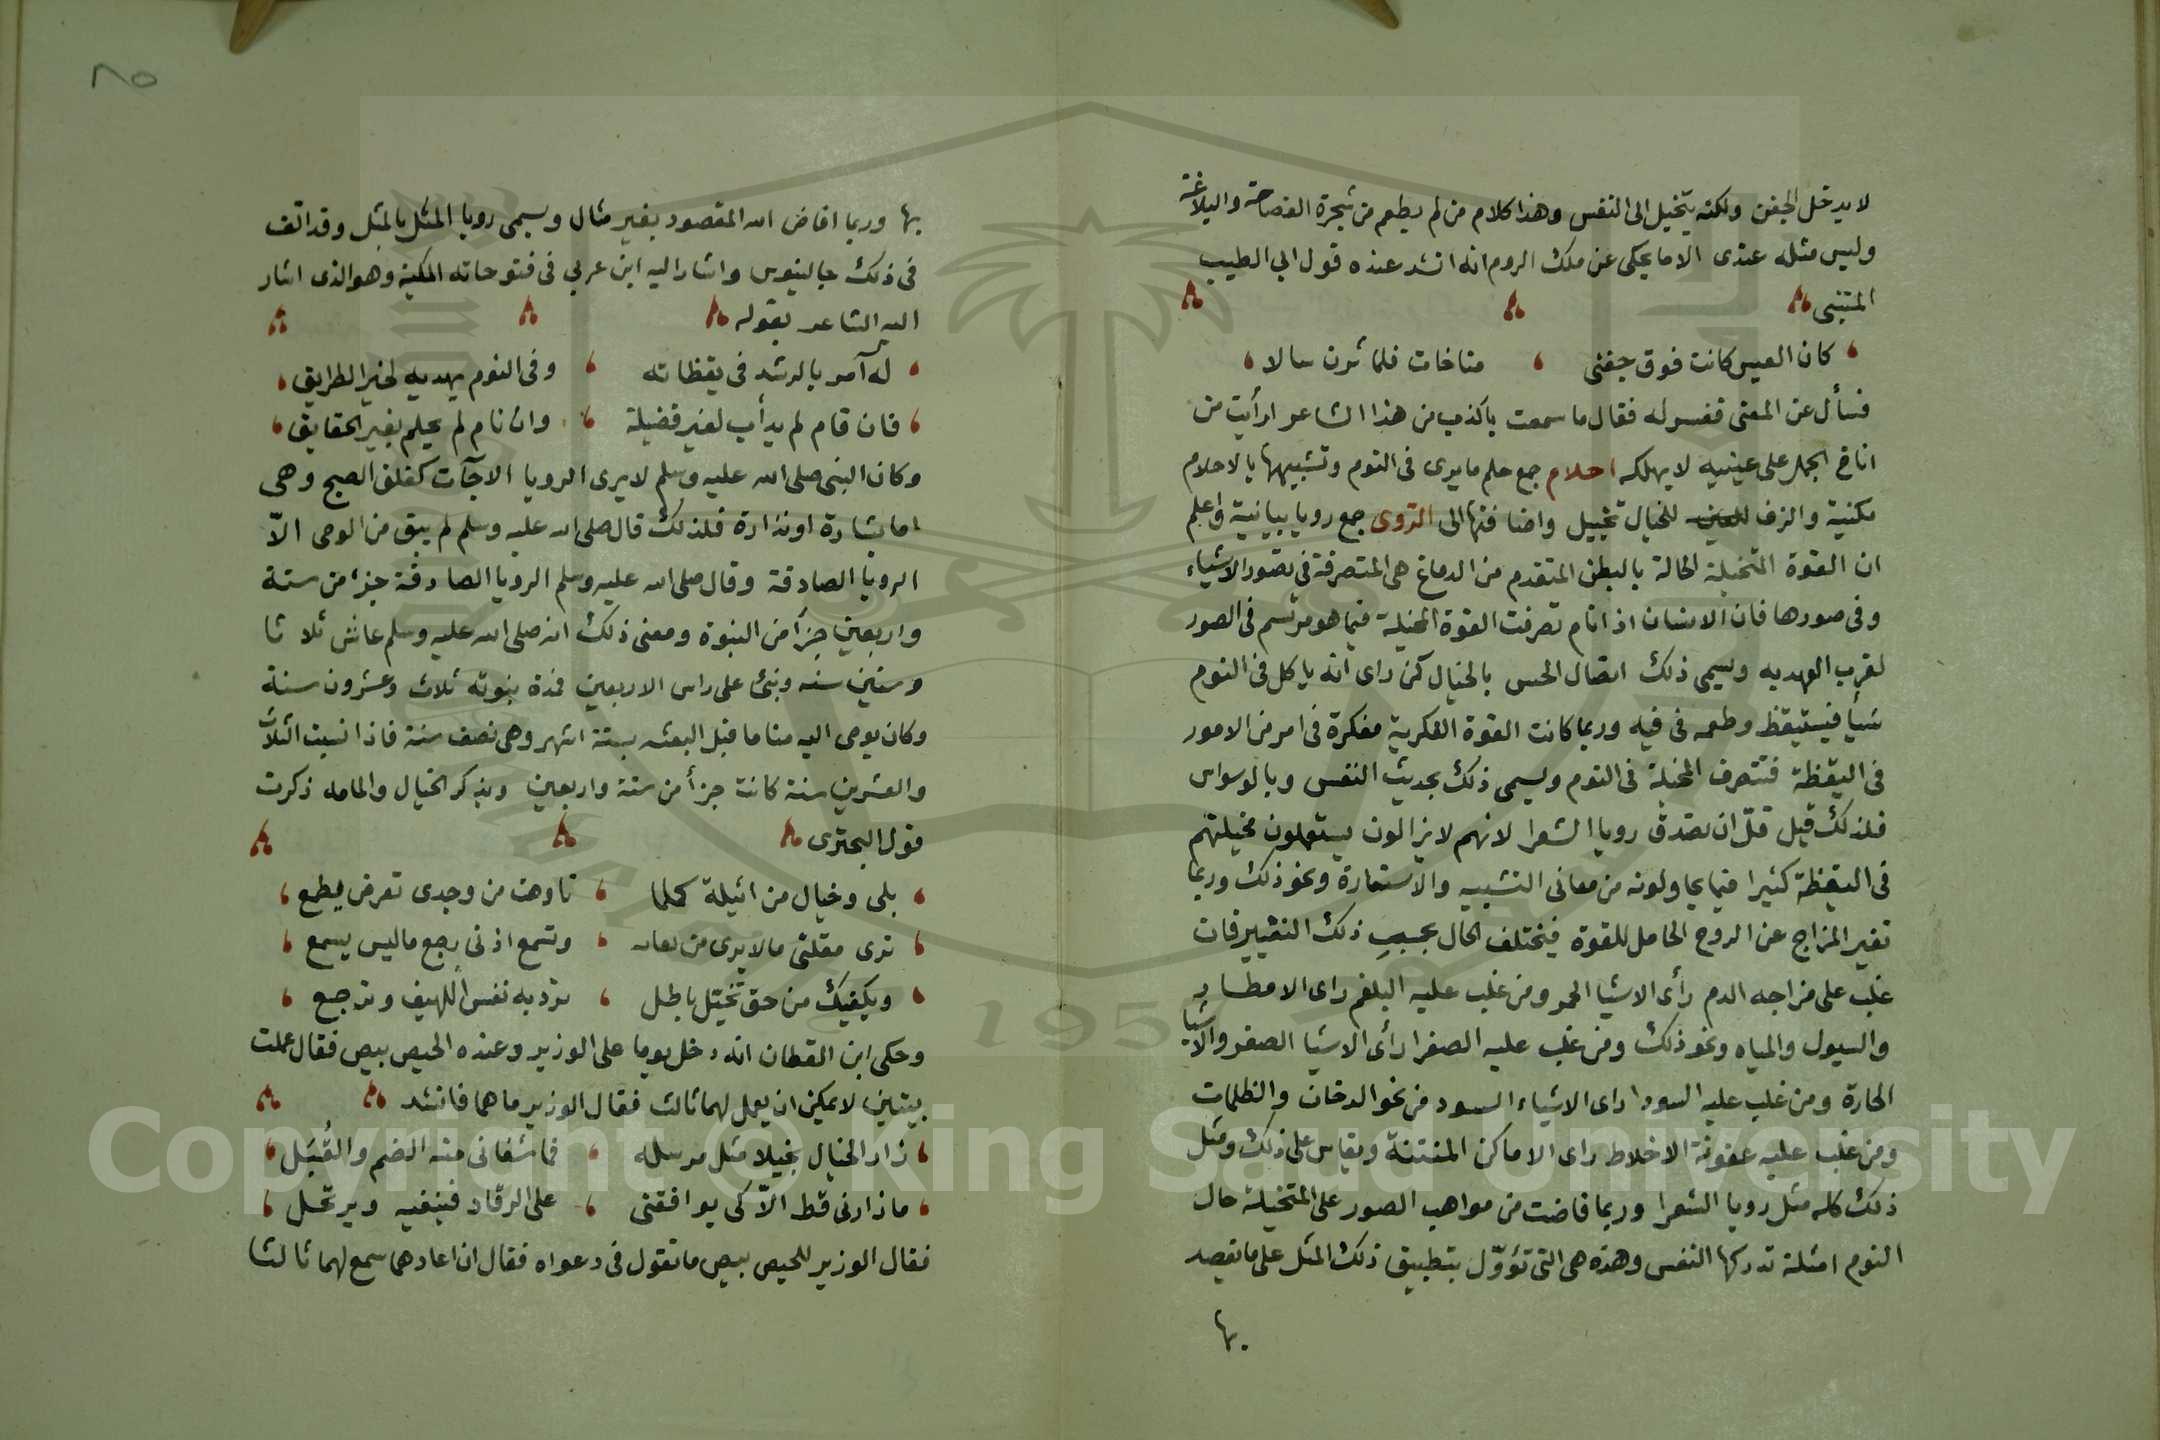 لا يدخل الجفن ولكنه يتخيل الى النفس وهذا كلام من لم يطعم من شجرة الفصاحة والبلاغة
وليس مثله عندى الا ما يحكى عن ملك الروم انه انشد عنده قول ابي الطيب
المتنبى
كان العيس كانت فوق جفنى مناخات فلما ثرن سالا
فسأل عن المعنى ففسر له فقال ما سمعت باكذب من هذا الشاعر ارأيت من
اناخ الجمل على عينيه لا يهلكه احلام جمع حلم ما يرى فى النوم وتشبيهها بالاحلام
مكنية والزف للخيال تخييل واضافتها الى الرؤى جمع رويا بيانية واعلم
ان القوة المتخيلة الحالة بالبطن المتقدم من الدماغ هى المتصرفة فى تصور الاشياء
وفى صورها فان الانسان اذا نام تصرفت القوة المخيلة فيما هو مرتسم فى الصور
لقرب العهد به ويسمى ذلك اتصال الحس بالخيال كمن راى انه ياكل فى النوم
شيأ فيستيقظ وطعمه فى فيه وربما كانت القوة الفكرية مفكرة فى امر من الامور
فى اليقظة فتتصرف المخيلة فى النوم ويسمى ذلك بحديث النفس وبالوسواس
فلذلك قيل قلّ ان تصدق رويا الشعرا لانهم لا يزالون يستعملون مخيلتهم
فى اليقظة كثيرا فيما يحاولونه من معانى التشبيه والاستعارة ونحو ذلك وربما
تغير المزاج عن الروح الحامل للقوة فيختلف الحال بحسب ذلك التغيير فان
غلب على مزاجه الدم رأى الاشيا الحمر ومن غلب عليه البلغم راى الامطار
والسيول والمياه ونحو ذلك ومن غلب عليه الصفرا رأى الاشيا الصفر والاشيا
الحارة ومن غلب عليه السودا راى الاشياء السود من نحو الدخان والظلمات
ومن غلب عليه عفونة الاخلاط راى الاماكن المنتنة ويقاس على ذلك ومثل
ذلك كله مثل رويا الشعرا وربما فاضت من مواهب الصور على المتخيلة حال
النوم امثلة تدركها النفس وهذه هى التى تؤوّل بتطبيق ذلك المثل على ما يقصد
بها
٨٥
بها وربما افاض الله المقصود بغير مثال ويسمى رويا المثل بالمثل وقد اتف
فى ذلك جالينوس واشار اليه ابن عربي فى فتوحاته المكية وهو الذى اشار
اليه الشاعر بقوله
له آمر بالرشد فى يقظاته وفى النوم يهديه لخير الطرايق
فان قام لم يدأب لغير فضيلة وان نام لم يحلم بغير الحقايق
وكان النبى صلى الله عليه وسلم لا يرى الرويا الا جآت كفلق الصبح وهى
اما بشارة او نذارة فلذلك قال صلى الله عليه وسلم لم يبق من الوحى الاّ
الرويا الصادقة وقال صلى الله عليه وسلم الرويا الصادقة جزء من ستة
واربعين جزأ من النبوة ومعنى ذلك انه صلى الله عليه وسلم عاش ثلاثا
وستين سنه ونبئ على راس الاربعين فمدة نبوته ثلاث وعشرون سنة
وكان يوحى اليه مناما قبل البعثه بستة اشهر وهى نصف سنة فاذا نسبت الثلاث
والعشرين سنة كانت جزأ من ستة واربعين وبذكر الخيال والمامه ذكرت
قول البحترى
بلى وخيال من اثيلة كلما تاوهت من وجدى تعرض يطمع
ترى مقلتى مالا يرى من لقائه وتسمع اذنى رجع ما ليس يسمع
ويكفيك من حق تخيّل باطل تردّ به نفس اللهيف وترجع
وحكى ابن القطان انه دخل يوما على الوزير وعنده الحيص بيص فقال عملت
بيتين لا يمكن ان يعمل لهما ثالث فقال الوزير ما هما فانشد
زار الخيال بخيلا مثل مرسله فما شفانى منه الضم والقُبَل
ما زارنى قط الاّ كى يوافقنى على الرقاد فينفيه ويرتحل
فقال الوزير للحيص بيص ما تقول فى دعواه فقال ان اعادهما سمع لهما ثالثا
1957
Copyright © King Saud University